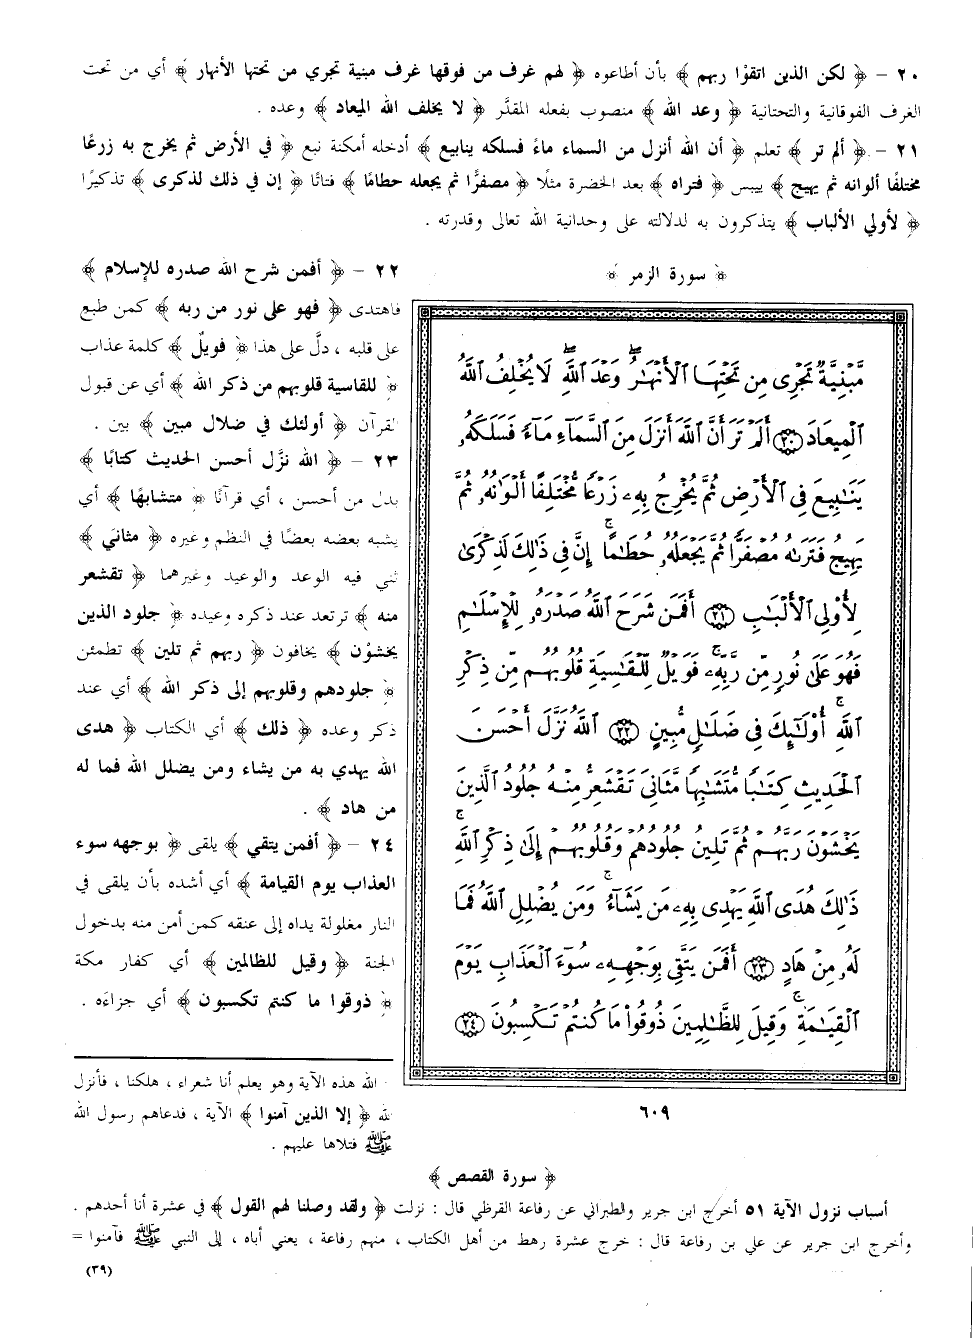 ٢٠ - ﴿ لكن الذين اتقوْا ربهم ﴾ بأن أطاعوه ﴿ لهم غرف من فوقها غرف مبنية تجري من تحتها الأنهار ﴾ أي من تحت
الغرف الفوقانية والتحتانية ﴿ وعد الله ﴾ منصوب بفعله المقدَّر ﴿ لا يخلف الله الميعاد ﴾ وعده .
٢١ - ﴿ ألم تر ﴾ تعلم ﴿ أن الله أنزل من السماء ماءً فسلكه ينابيع ﴾ أدخله أمكنة نبع ﴿ في الأرض ثم يخرج به زرعًا
مختلفًا ألوانه ثم يهيج ﴾ ييبس ﴿ فتراه ﴾ بعد الخضرة مثلًا ﴿ مصفرًّا ثم يجعله حطامًا ﴾ فتاتًا ﴿ إن في ذلك لذكرى ﴾ تذكيرًا
﴿ لأولي الألباب ﴾ يتذكرون به لدلالته على وحدانية الله تعالى وقدرته .
﴿ سورة الزمر ﴾
مَّبْنِيَّةٌ تَجْرِى مِن تَحْتِهَا ٱلْأَنْهَٰرُ وَعْدَ ٱللَّهِ لَا يُخْلِفُ ٱللَّهُ
ٱلْمِيعَادَ ﴿٢٠﴾ أَلَمْ تَرَ أَنَّ ٱللَّهَ أَنزَلَ مِنَ ٱلسَّمَآءِ مَآءً فَسَلَكَهُۥ
يَنَٰبِيعَ فِى ٱلْأَرْضِ ثُمَّ يُخْرِجُ بِهِۦ زَرْعًا مُّخْتَلِفًا أَلْوَٰنُهُۥ ثُمَّ
يَهِيجُ فَتَرَىٰهُ مُصْفَرًّا ثُمَّ يَجْعَلُهُۥ حُطَٰمًا إِنَّ فِى ذَٰلِكَ لَذِكْرَىٰ
لِأُو۟لِى ٱلْأَلْبَٰبِ ﴿٢١﴾ أَفَمَن شَرَحَ ٱللَّهُ صَدْرَهُۥ لِلْإِسْلَٰمِ
فَهُوَ عَلَىٰ نُورٍ مِّن رَّبِّهِۦ فَوَيْلٌ لِّلْقَٰسِيَةِ قُلُوبُهُم مِّن ذِكْرِ
ٱللَّهِ أُو۟لَٰٓئِكَ فِى ضَلَٰلٍ مُّبِينٍ ﴿٢٢﴾ ٱللَّهُ نَزَّلَ أَحْسَنَ
ٱلْحَدِيثِ كِتَٰبًا مُّتَشَٰبِهًا مَّثَانِىَ تَقْشَعِرُّ مِنْهُ جُلُودُ ٱلَّذِينَ
يَخْشَوْنَ رَبَّهُمْ ثُمَّ تَلِينُ جُلُودُهُمْ وَقُلُوبُهُمْ إِلَىٰ ذِكْرِ ٱللَّهِ
ذَٰلِكَ هُدَى ٱللَّهِ يَهْدِى بِهِۦ مَن يَشَآءُ وَمَن يُضْلِلِ ٱللَّهُ فَمَا
لَهُۥ مِنْ هَادٍ ﴿٢٣﴾ أَفَمَن يَتَّقِى بِوَجْهِهِۦ سُوٓءَ ٱلْعَذَابِ يَوْمَ
ٱلْقِيَٰمَةِ وَقِيلَ لِلظَّٰلِمِينَ ذُوقُوا۟ مَا كُنتُمْ تَكْسِبُونَ ﴿٢٤﴾
٦٠٩
٢٢ - ﴿ أفمن شرح الله صدره للإسلام ﴾
فاهتدى ﴿ فهو على نور من ربه ﴾ كمن طبع
على قلبه ، دلَّ على هذا ﴿ فويلٌ ﴾ كلمة عذاب
﴿ للقاسية قلوبهم من ذكر الله ﴾ أي عن قبول
القرآن ﴿ أولئك في ضلال مبين ﴾ بين .
٢٣ - ﴿ الله نزَّل أحسن الحديث كتابًا ﴾
بدل من أحسن ، أي قرآنًا ﴿ متشابهًا ﴾ أي
يشبه بعضه بعضًا في النظم وغيره ﴿ مثاني ﴾
ثني فيه الوعد والوعيد وغيرهما ﴿ تقشعر
منه ﴾ ترتعد عند ذكره وعيده ﴿ جلود الذين
يخشوْن ﴾ يخافون ﴿ ربهم ثم تلين ﴾ تطمئن
﴿ جلودهم وقلوبهم إلى ذكر الله ﴾ أي عند
ذكر وعده ﴿ ذلك ﴾ أي الكتاب ﴿ هدى
الله يهدي به من يشاء ومن يضلل الله فما له
من هاد ﴾ .
٢٤ - ﴿ أفمن يتقي ﴾ يلقى ﴿ بوجهه سوء
العذاب يوم القيامة ﴾ أي أشده بأن يلقى في
النار مغلولة يداه إلى عنقه كمن أمن منه بدخول
الجنة ﴿ وقيل للظالمين ﴾ أي كفار مكة
﴿ ذوقوا ما كنتم تكسبون ﴾ أي جزاءَه .
الله هذه الآية وهو يعلم أنا شعراء ، هلكنا ، فأنزل
لله ﴿ إلا الذين آمنوا ﴾ الآية ، فدعاهم رسول الله
ﷺ فتلاها عليهم .
﴿ سورة القصص ﴾
أسباب نزول الآية ٥١ أخرج ابن جرير والطبراني عن رفاعة القرظي قال : نزلت ﴿ ولقد وصلنا لهم القول ﴾ في عشرة أنا أحدهم .
وأخرج ابن جرير عن علي بن رفاعة قال : خرج عشرة رهط من أهل الكتاب ، منهم رفاعة ، يعني أباه ، إلى النبي ﷺ فآمنوا =
(٣٩)